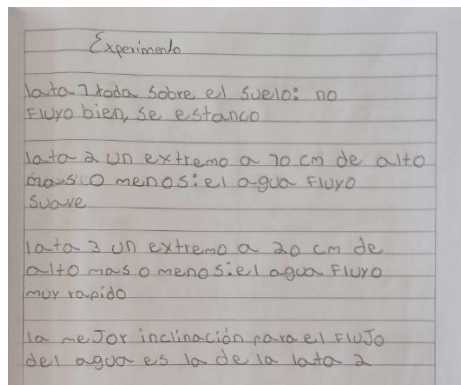 Experimento
lata 1 toda sobre el suelo: no
Fluyo bien, se estanco
lata 2 un extremo a 10 cm de alto
mas o menos: el agua Fluyo
suave
lata 3 un extremo a 20 cm de
alto mas o menos: el agua Fluyo
muy rapido
la mejor inclinación para el Flujo
del agua es la de la lata 2